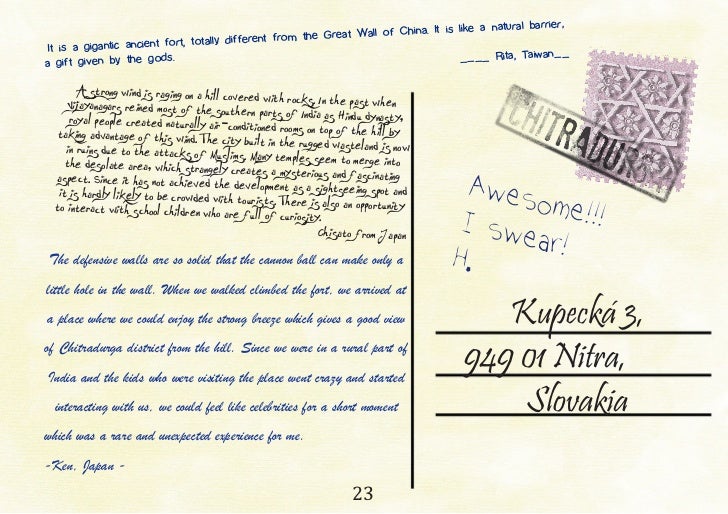 It is a gigantic ancient fort, totally different from the Great Wall of China. It is like a natural barrier,
a gift given by the gods.
____ Rita, Taiwan__
A strong wind is raging on a hill covered with rocks. In the past when
Vijayanagars reined most of the southern parts of India as Hindu dynasty,
royal people created naturally air-conditioned rooms on top of the hill by
taking advantage of this wind. The city built in the rugged wasteland is now
in ruins due to the attacks of Muslims. Many temples seem to merge into
the desolate area, which strangely creates a mysterious and fascinating
aspect. Since it has not achieved the development as a sightseeing spot and
it is hardly likely to be crowded with tourists. There is also an opportunity
to interact with school children who are full of curiosity.
Chisato from Japan
The defensive walls are so solid that the cannon ball can make only a
little hole in the wall. When we walked climbed the fort, we arrived at
a place where we could enjoy the strong breeze which gives a good view
of Chitradurga district from the hill. Since we were in a rural part of
India and the kids who were visiting the place went crazy and started
interacting with us, we could feel like celebrities for a short moment
which was a rare and unexpected experience for me.
-Ken, Japan -
CHITRADURGA
Awesome!!!
I swear!
H.
Kupecká 3,
949 01 Nitra,
Slovakia
23